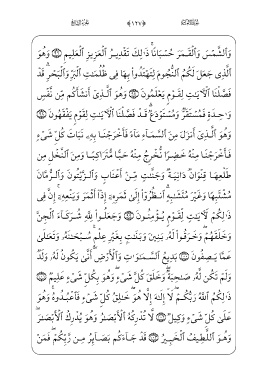 وَٱلشَّمْسَ وَٱلْقَمَرَ حُسْبَانًا ذَٰلِكَ تَقْدِيرُ ٱلْعَزِيزِ ٱلْعَلِيمِ ۝ وَهُوَ
ٱلَّذِى جَعَلَ لَكُمُ ٱلنُّجُومَ لِتَهْتَدُوا۟ بِهَا فِى ظُلُمَٰتِ ٱلْبَرِّ وَٱلْبَحْرِ قَدْ
فَصَّلْنَا ٱلْءَايَٰتِ لِقَوْمٍ يَعْلَمُونَ ۝ وَهُوَ ٱلَّذِىٓ أَنشَأَكُم مِّن نَّفْسٍ
وَٰحِدَةٍ فَمُسْتَقَرٌّ وَمُسْتَوْدَعٌ قَدْ فَصَّلْنَا ٱلْءَايَٰتِ لِقَوْمٍ يَفْقَهُونَ ۝
وَهُوَ ٱلَّذِىٓ أَنزَلَ مِنَ ٱلسَّمَآءِ مَآءً فَأَخْرَجْنَا بِهِۦ نَبَاتَ كُلِّ شَىْءٍ
فَأَخْرَجْنَا مِنْهُ خَضِرًا نُّخْرِجُ مِنْهُ حَبًّا مُّتَرَاكِبًا وَمِنَ ٱلنَّخْلِ مِن
طَلْعِهَا قِنْوَانٌ دَانِيَةٌ وَجَنَّٰتٍ مِّنْ أَعْنَابٍ وَٱلزَّيْتُونَ وَٱلرُّمَّانَ
مُشْتَبِهًا وَغَيْرَ مُتَشَٰبِهٍ ٱنظُرُوٓا۟ إِلَىٰ ثَمَرِهِۦٓ إِذَآ أَثْمَرَ وَيَنْعِهِۦٓ إِنَّ فِى
ذَٰلِكُمْ لَءَايَٰتٍ لِّقَوْمٍ يُؤْمِنُونَ ۝ وَجَعَلُوا۟ لِلَّهِ شُرَكَآءَ ٱلْجِنَّ
وَخَلَقَهُمْ وَخَرَقُوا۟ لَهُۥ بَنِينَ وَبَنَٰتٍۭ بِغَيْرِ عِلْمٍ سُبْحَٰنَهُۥ وَتَعَٰلَىٰ
عَمَّا يَصِفُونَ ۝ بَدِيعُ ٱلسَّمَٰوَٰتِ وَٱلْأَرْضِ أَنَّىٰ يَكُونُ لَهُۥ وَلَدٌ
وَلَمْ تَكُن لَّهُۥ صَٰحِبَةٌ وَخَلَقَ كُلَّ شَىْءٍ وَهُوَ بِكُلِّ شَىْءٍ عَلِيمٌ ۝
ذَٰلِكُمُ ٱللَّهُ رَبُّكُمْ لَآ إِلَٰهَ إِلَّا هُوَ خَٰلِقُ كُلِّ شَىْءٍ فَٱعْبُدُوهُ وَهُوَ
عَلَىٰ كُلِّ شَىْءٍ وَكِيلٌ ۝ لَّا تُدْرِكُهُ ٱلْأَبْصَٰرُ وَهُوَ يُدْرِكُ ٱلْأَبْصَٰرَ
وَهُوَ ٱللَّطِيفُ ٱلْخَبِيرُ ۝ قَدْ جَآءَكُم بَصَآئِرُ مِن رَّبِّكُمْ فَمَنْ